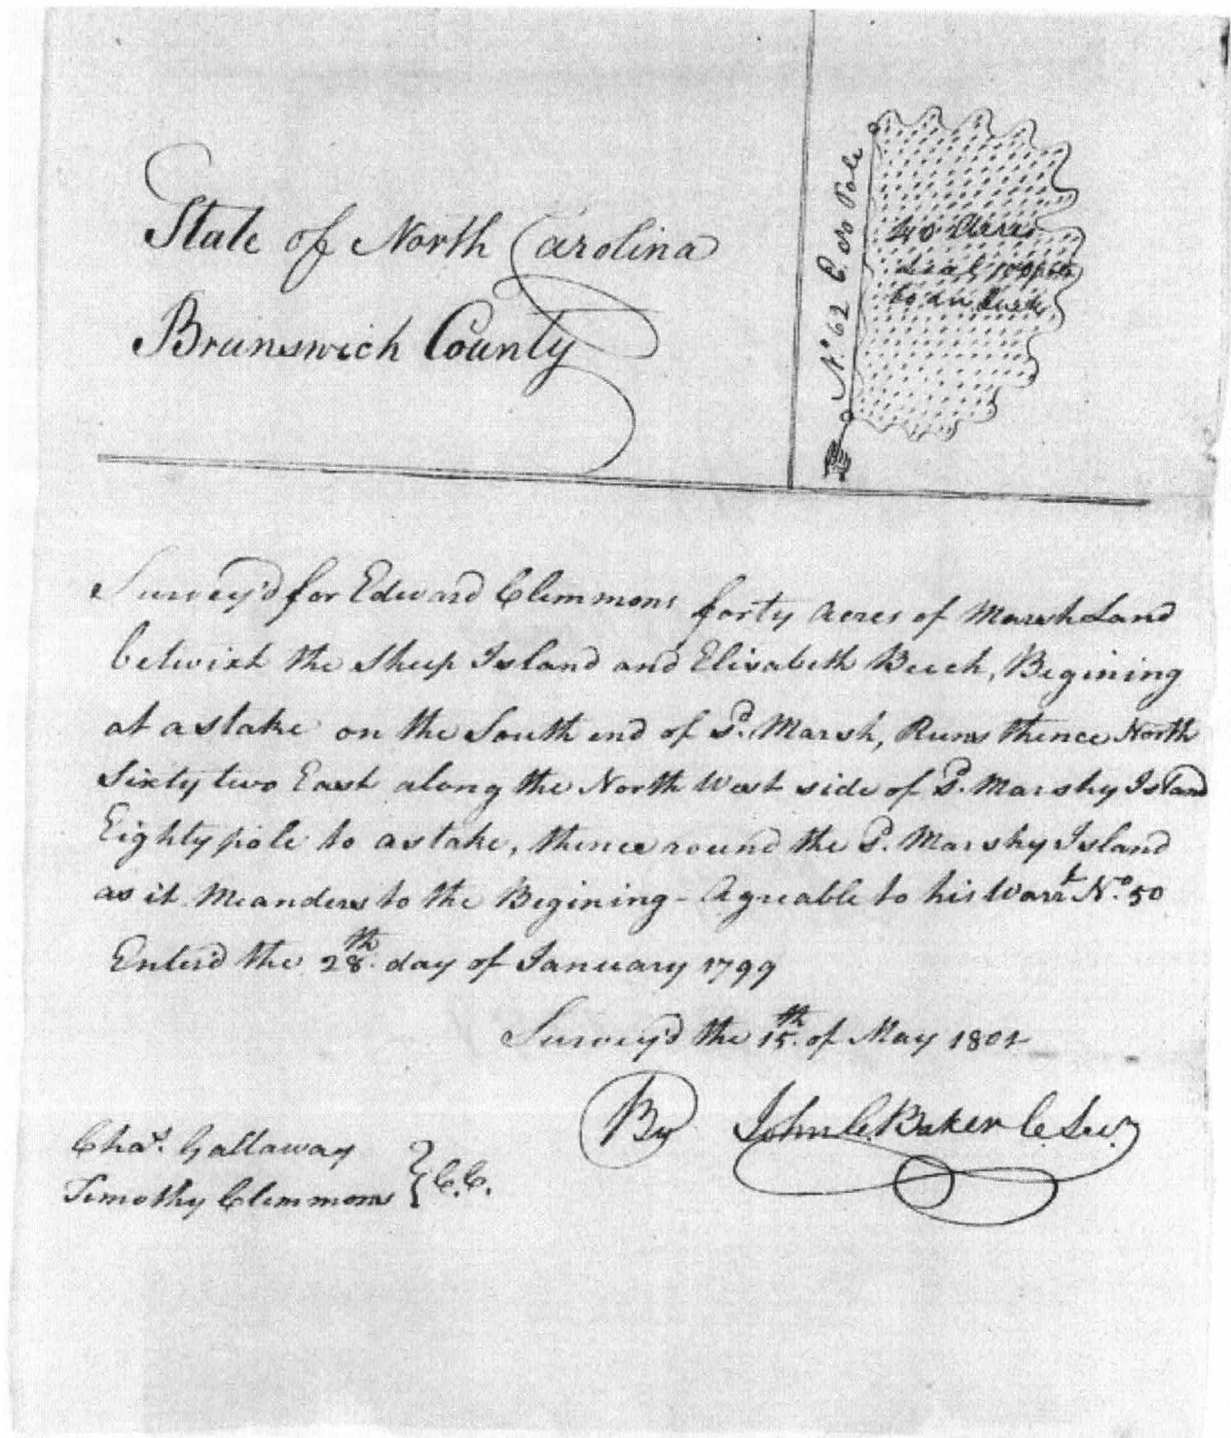 State of North Carolina
Brunswick County
N.o 62 E. 80 Pole
40 Acres
Scale 100 pole
to an Inch
Survey'd for Edward Clemmons forty Acres of Marsh Land
betwixt the Sheep Island and Elisabeth Beech, Begining
at a stake on the South end of s.d Marsh, Runs thence North
Sixty two East along the North West side of s.d Marshy Island
Eighty pole to a stake, thence round the s.d Marshy Island
as it Meanders to the Begining - Agreable to his Warr.t N.o 50
Enter'd the 28.th day of January 1799
Survey'd the 15.th of May 1801
By John C. Baker C. Sur.
Cha.s Gallaway
Timothy Clemmons } C.C.